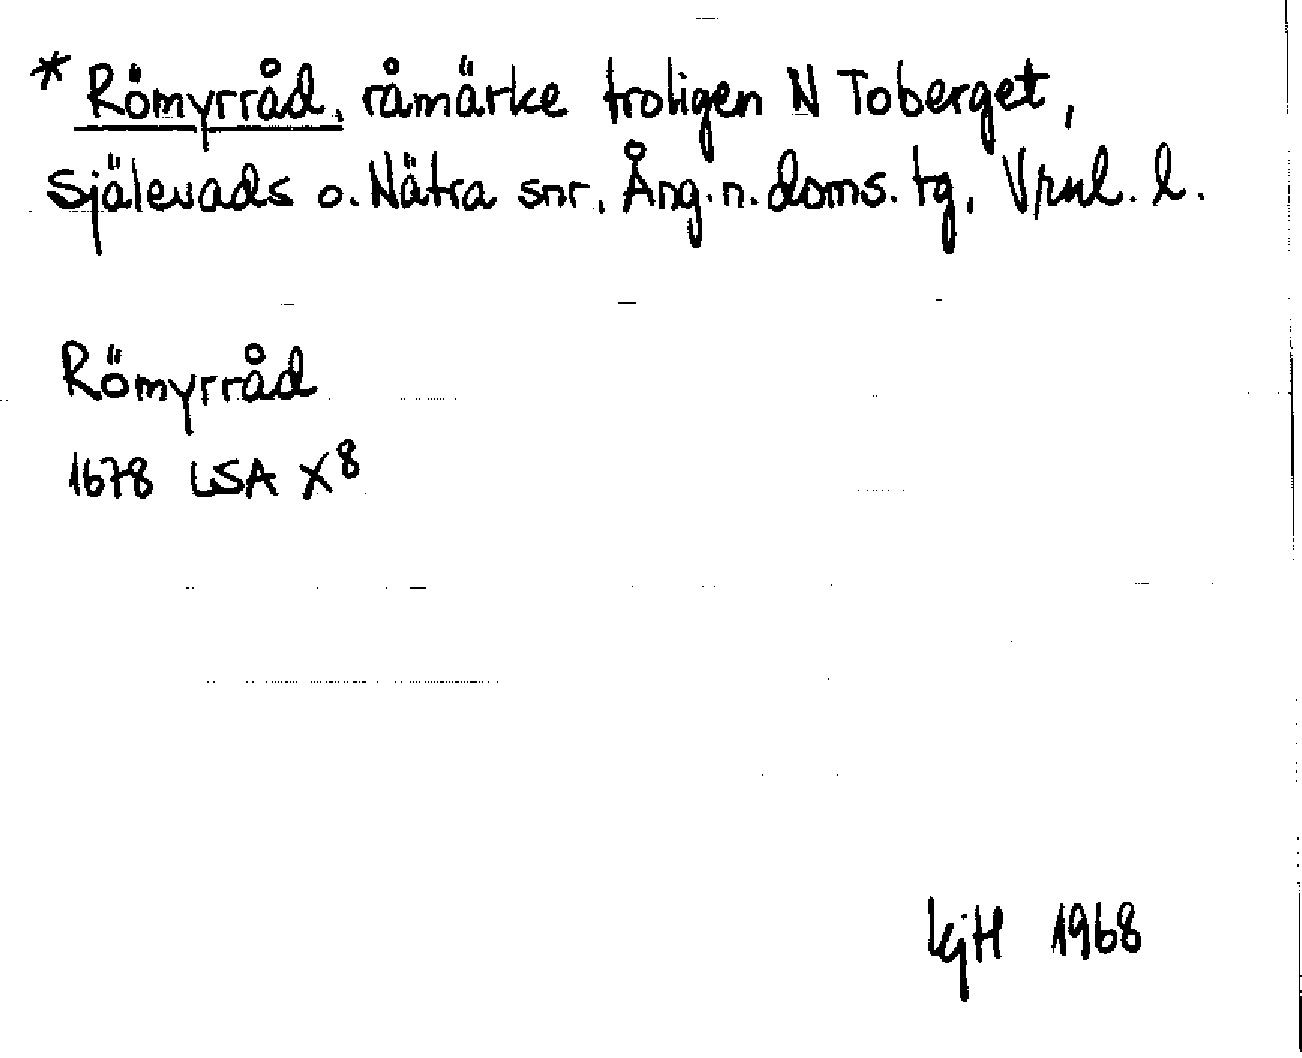 * Römyrråd, råmärke troligen N Toberget,
Själevads o. Nätra snr, Ång. n. doms. tg, Vrnl. l.
Römyrråd
1678 LSA X8
kjH 1968